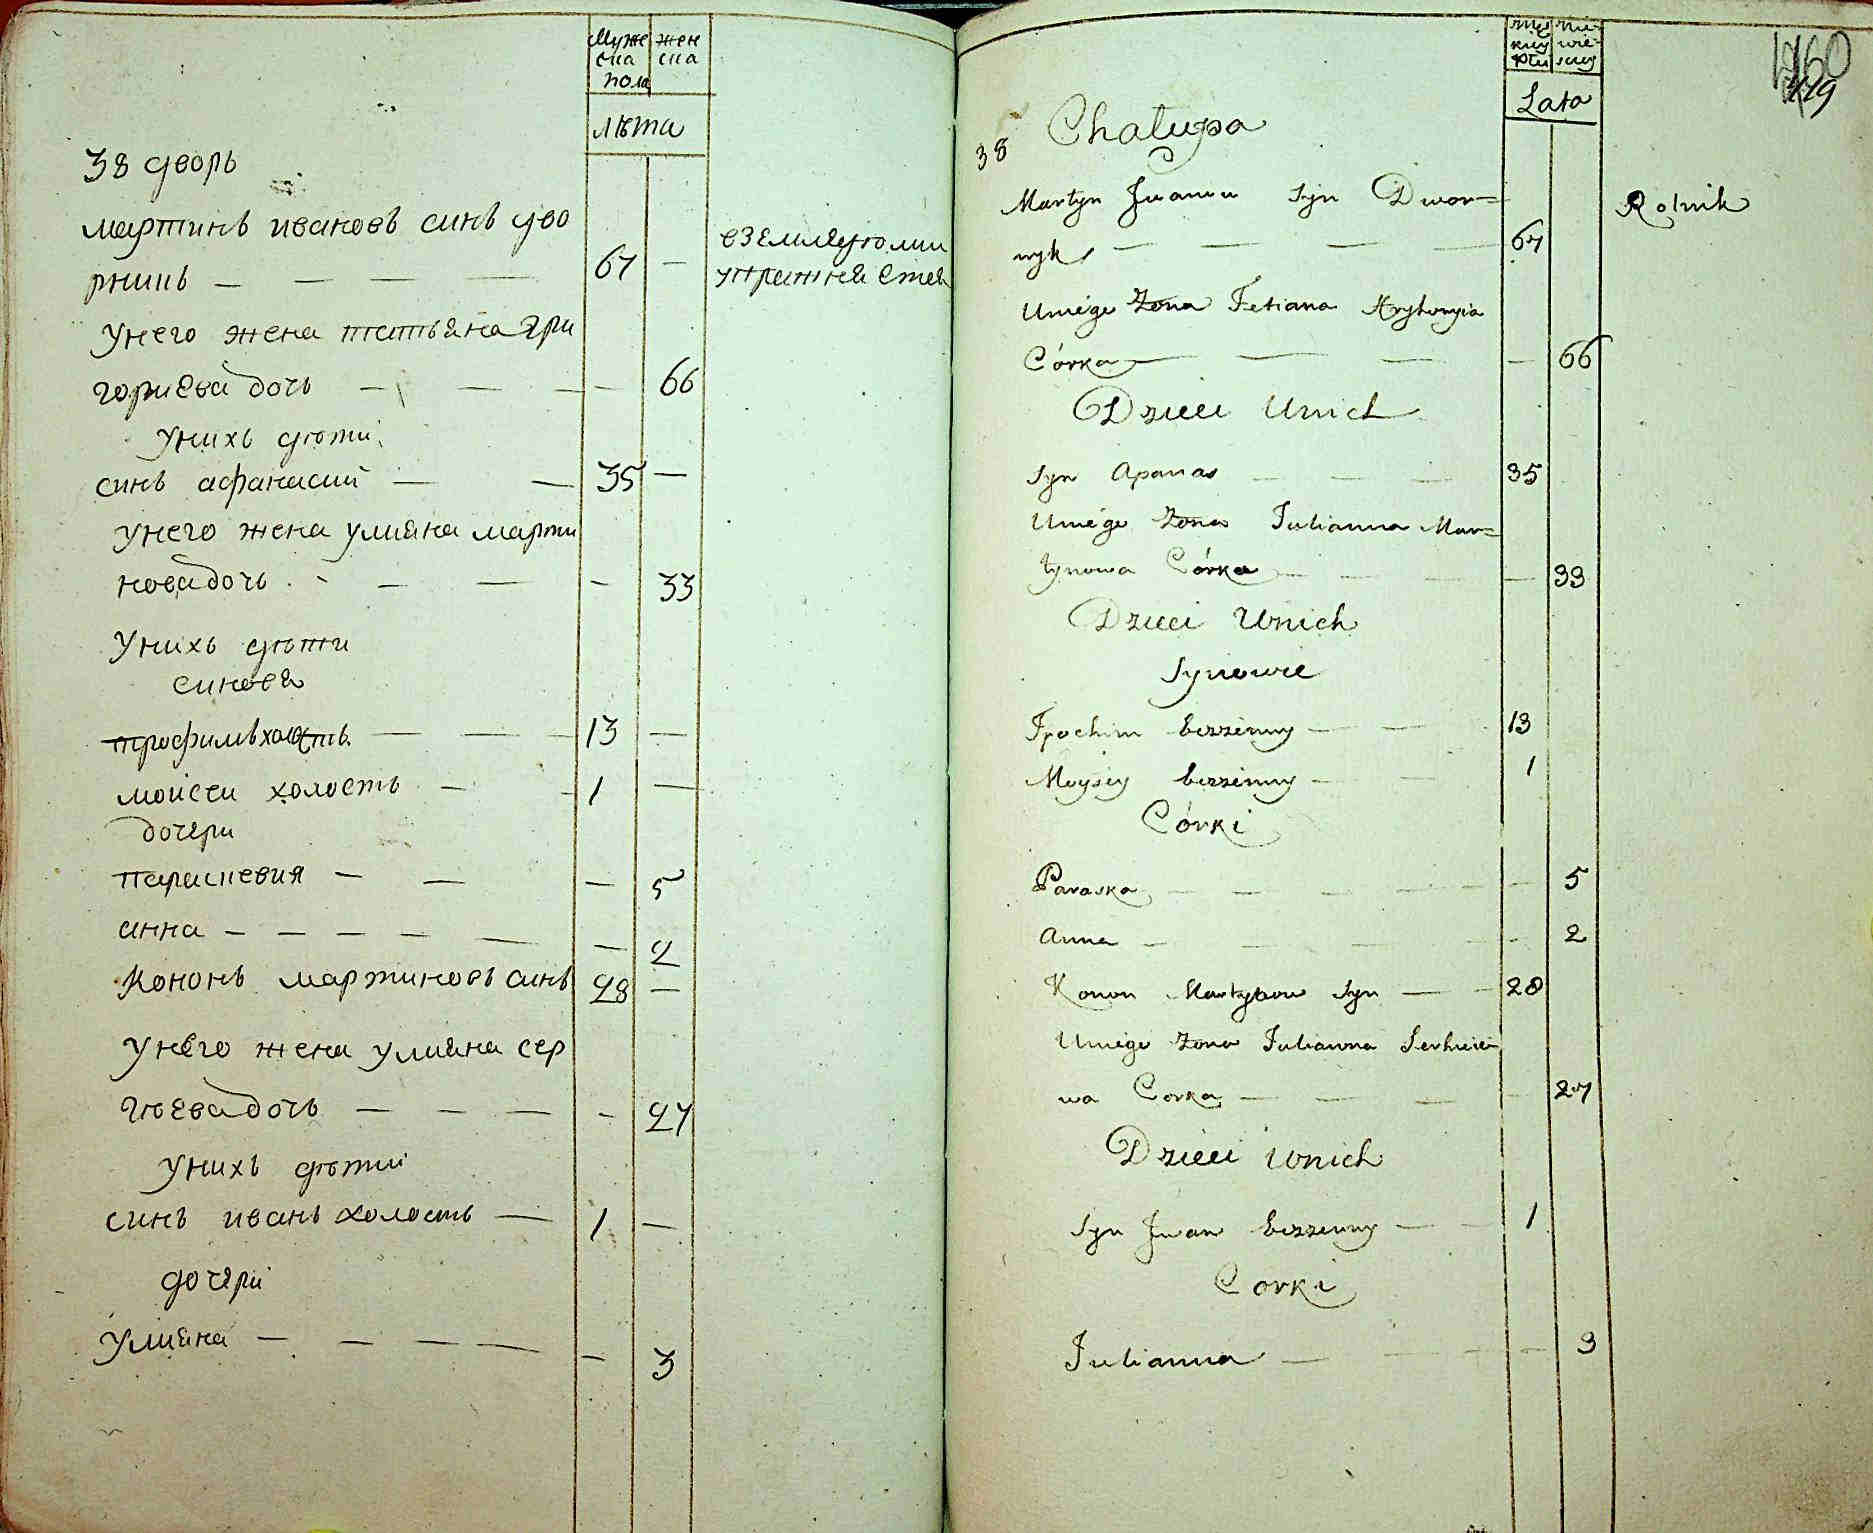 Муже жен
ска ска
пола
лѣта
38 дворъ
мартинъ ивановъ синъ дво
рникъ — — — — 67 —
вземледѣлии
упражняется
унего жена татьяна гри
гориева дочь — — — — 66
унихъ дѣти
синъ афанасий — — 35 —
унего жена улияна марти
нова дочь — — — — 33
унихъ дѣти
синовя
трофимъ холость — — — 13 —
моисеи холость — — 1 —
дочери
параскевия — — — 5
анна — — — — — — 2
Кононъ мартиновъ синъ 28 —
унего жена улияна сер
гѣева дочь — — — — 27
унихъ дѣтии
синъ иванъ холость — 1 —
дочери
улияна — — — — — 3
męz nie-
kiey wie-
płci sciey
Lata
460
449
38 Chałupa
Martyn Jwanow Syn Dwor=
nyk — — — — 67
Rolnik
Uniego Żona Tetiana Hryhoryia
Córka — — — — 66
Dzieci Unich
Syn Apanas — — — 35
Uniego Żona Julianna Mar=
tynowa Córka — — — — 33
Dzieci Unich
Synowie
Trochim bezzenny — — 13
Moysiy bezzenny — — 1
Córki
Paraska — — — — — — 5
Anna — — — — — 2
Konon Martynow Syn — — 28
Uniego Żona Julianna Serhieie-
wa Corka — — — — 27
Dzieci Unich
Syn Jwan bezzenny — — 1
Corki
Julianna — — — — 3